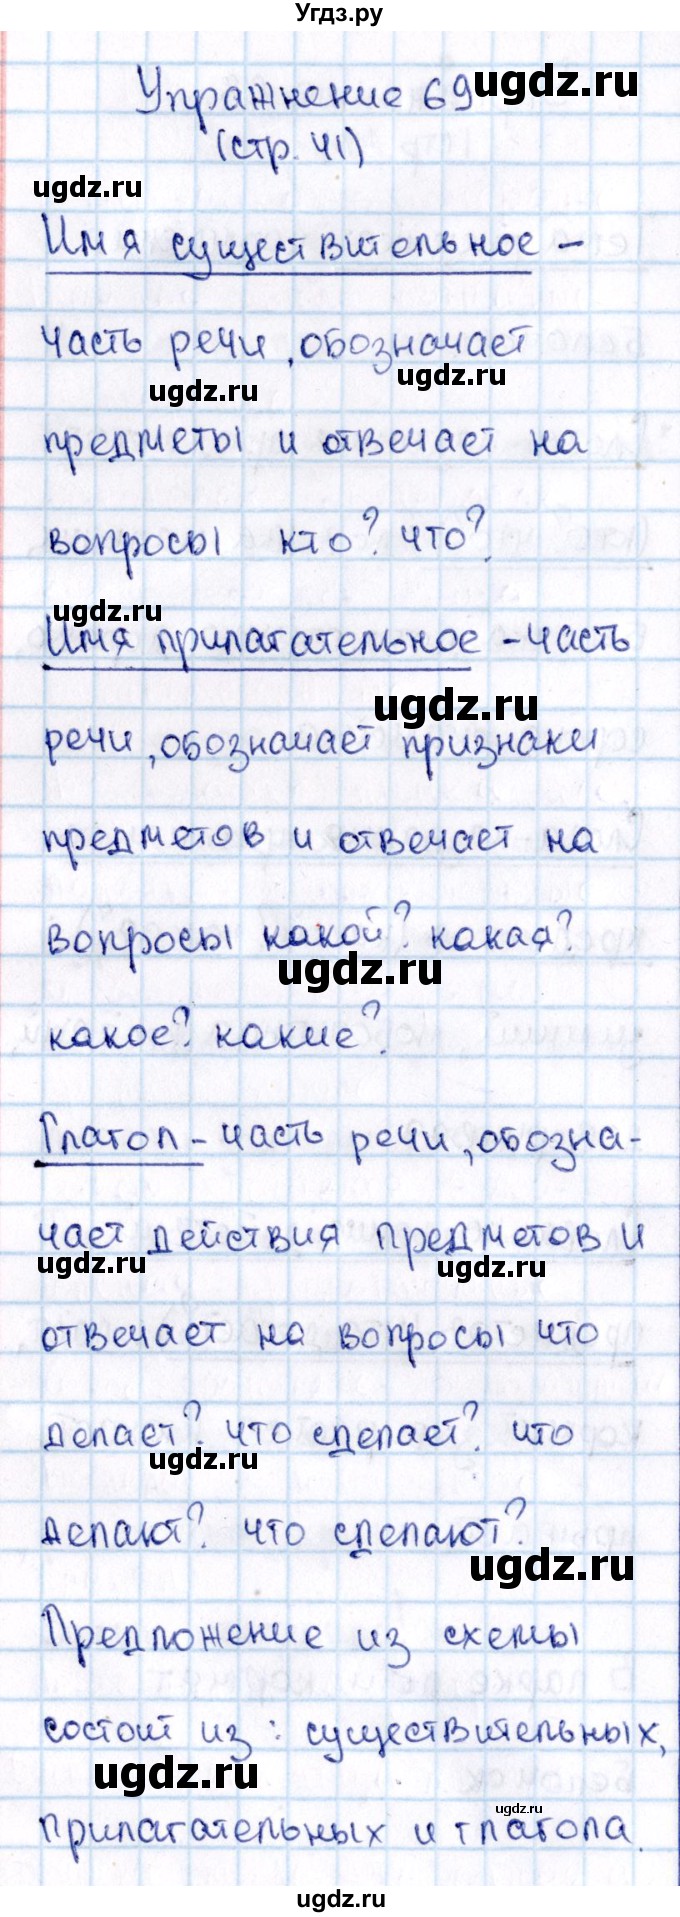 Угдз.ру
Упражнение 69
ugdz.ru
(стр. 41)
ugdz.ru
Имя существительное -
часть речи, обозначает
ugdz.ru
ugdz.ru
предметы и отвечает на
вопросы кто? что?
ugdz.ru
Имя прилагательное - часть
ugdz.ru
речи, обозначает признаки
предметов и отвечает на
вопросы какой? какая?
ugdz.ru
какое? какие?
Глагол - часть речи, обозна-
чает действия предметов и
ugdz.ru
ugdz.ru
отвечает на вопросы что
делает? что сделает? что
ugdz.ru
делают? что сделают?
ugdz.ru
Предложение из схемы
состоит из: существительных,
ugdz.ru
ugdz.ru
прилагательных и глагола.
ugdz.ru